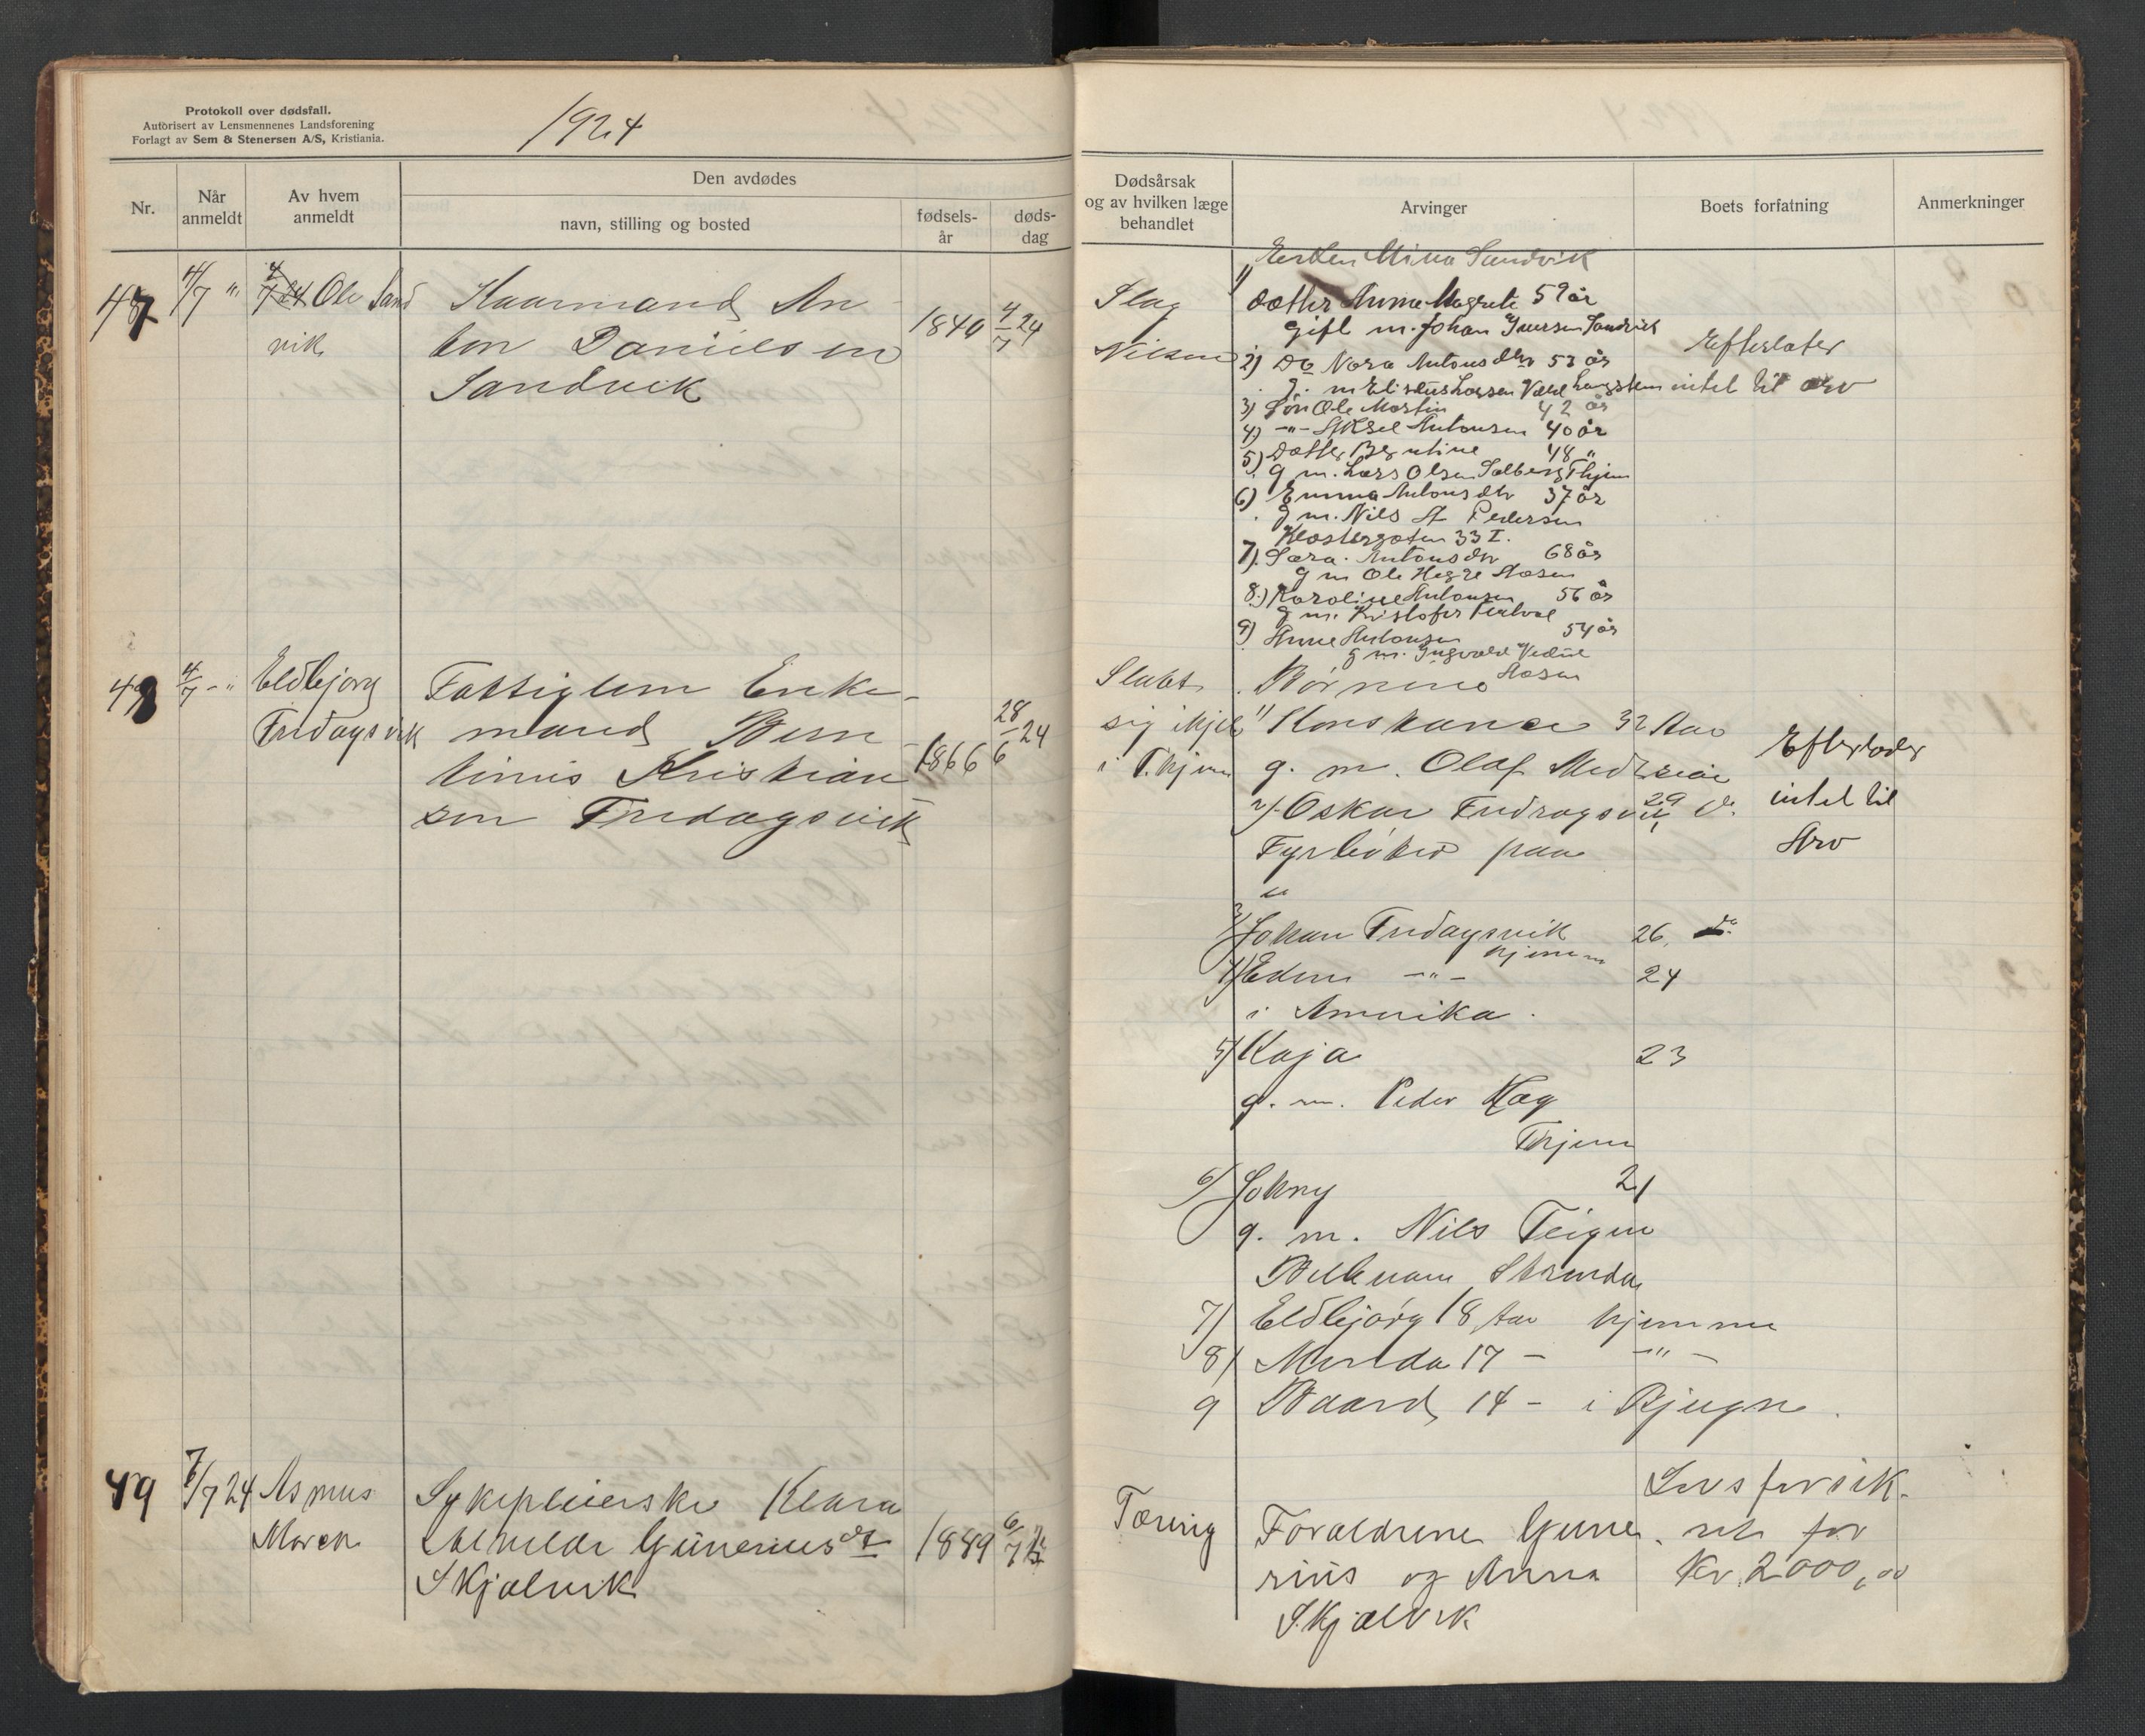 Protokoll over dødsfall.
Autorisert av Lensmennenes Landsforening
Forlagt av Sem & Stenersen A/S, Kristiania.
1924
Nr.
Når anmeldt
Av hvem anmeldt
Den avdødes
navn, stilling og bosted
fødsels-år
døds-dag
47
4/7 "
Ole Sand
vik
Kaarmand An
ton Danielsen
Sandvik
1840
4/7 24
48
4/7 - "
Eldbjørg
Fredagsvik
Fattiglem Enke-
mand Bern
tinus Kristian
sen Fredagsvik
1866
28/6 24
49
7/7 24
Asmus
Moren
Sykepleierske Klara
Gunerius dt
Skjælvik
1889
6/7
Dødsårsak
og av hvilken læge
behandlet
Arvinger
Boets forfatning
Anmerkninger
Slag
Nilsen
Enken Mina Sandvik
1) datter Anna Magrete 59 år
gift m. Johan Iversen Sandvik
2) Do Nora Antonsdtr 53 år
g. m Elisæus Larsen
3) Søn Ole Martin 42 år
4) -"- Aksel Antonsen 40 år
5) Datter Berntine 48 "
g m. Lars Olsen Solberg Thjem
6) Emma Antonsdtr 37 år
g m. Nils A Pedersen
Klostergaten 33 I.
7) Sara Antonsdtr 68 år
g m Ole Hegge Aasen
8) Karoline Antonsen 56 år
g m. Kristofer
9) Anne Antonsen 54 år
g m. Ingvald
Aasen
Efterlater
intet til arv
sig ihjel
i Thjem
Børnene
1) Konstance 32 Aar
g. m. Olaf
2) Oskar Fredagsvik 29 d.
Fyrbøter paa
3) Johan Fredagsvik 26 do
hjemme
4) Edvin -"- 24
i Amerika.
5) Kaja 23
g. m. Peder Hag
Thjem
6) Johny 21
g. m. Nils Teigen
Strinda
7) Eldbjørg 18 Aar hjemme
8) Merida 17 - -"-
9 Baard 14 - i Bjugn.
Efterlader
intet til
Arv
Tæring
Forældrene Gune
rius og Anna
Skjælvik
Livsforsik-
ret for
Kr. 2000,00